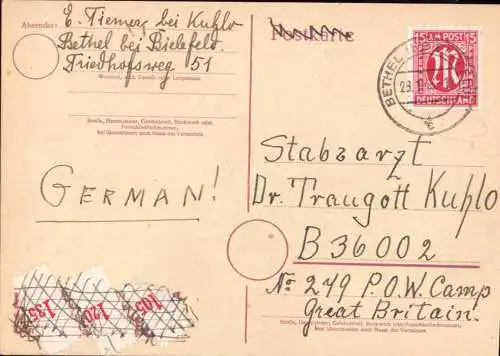 Absender: E. Tiemerz bei Kuhlo
Bethel bei Bielefeld
Friedhofsweg 51
Wohnort, auch Zustell- oder Leitpostamt
Straße, Hausnummer, Gebäudeteil, Stockwerk oder
Postschließfachnummer,
bei Untermietern auch Name des Vermieters
GERMAN!
Postkarte
15 AM POST 15
DEUTSCHLAND
BETHEL
Stabzarzt
Dr. Traugott Kuhlo
B36002
No 249 P.O.W. Camp
Great Britain.
Straße, Hausnummer, Gebäudeteil, Stockwerk oder Postschließfachnummer,
bei Untermietern auch Name des Vermieters
135 120 105